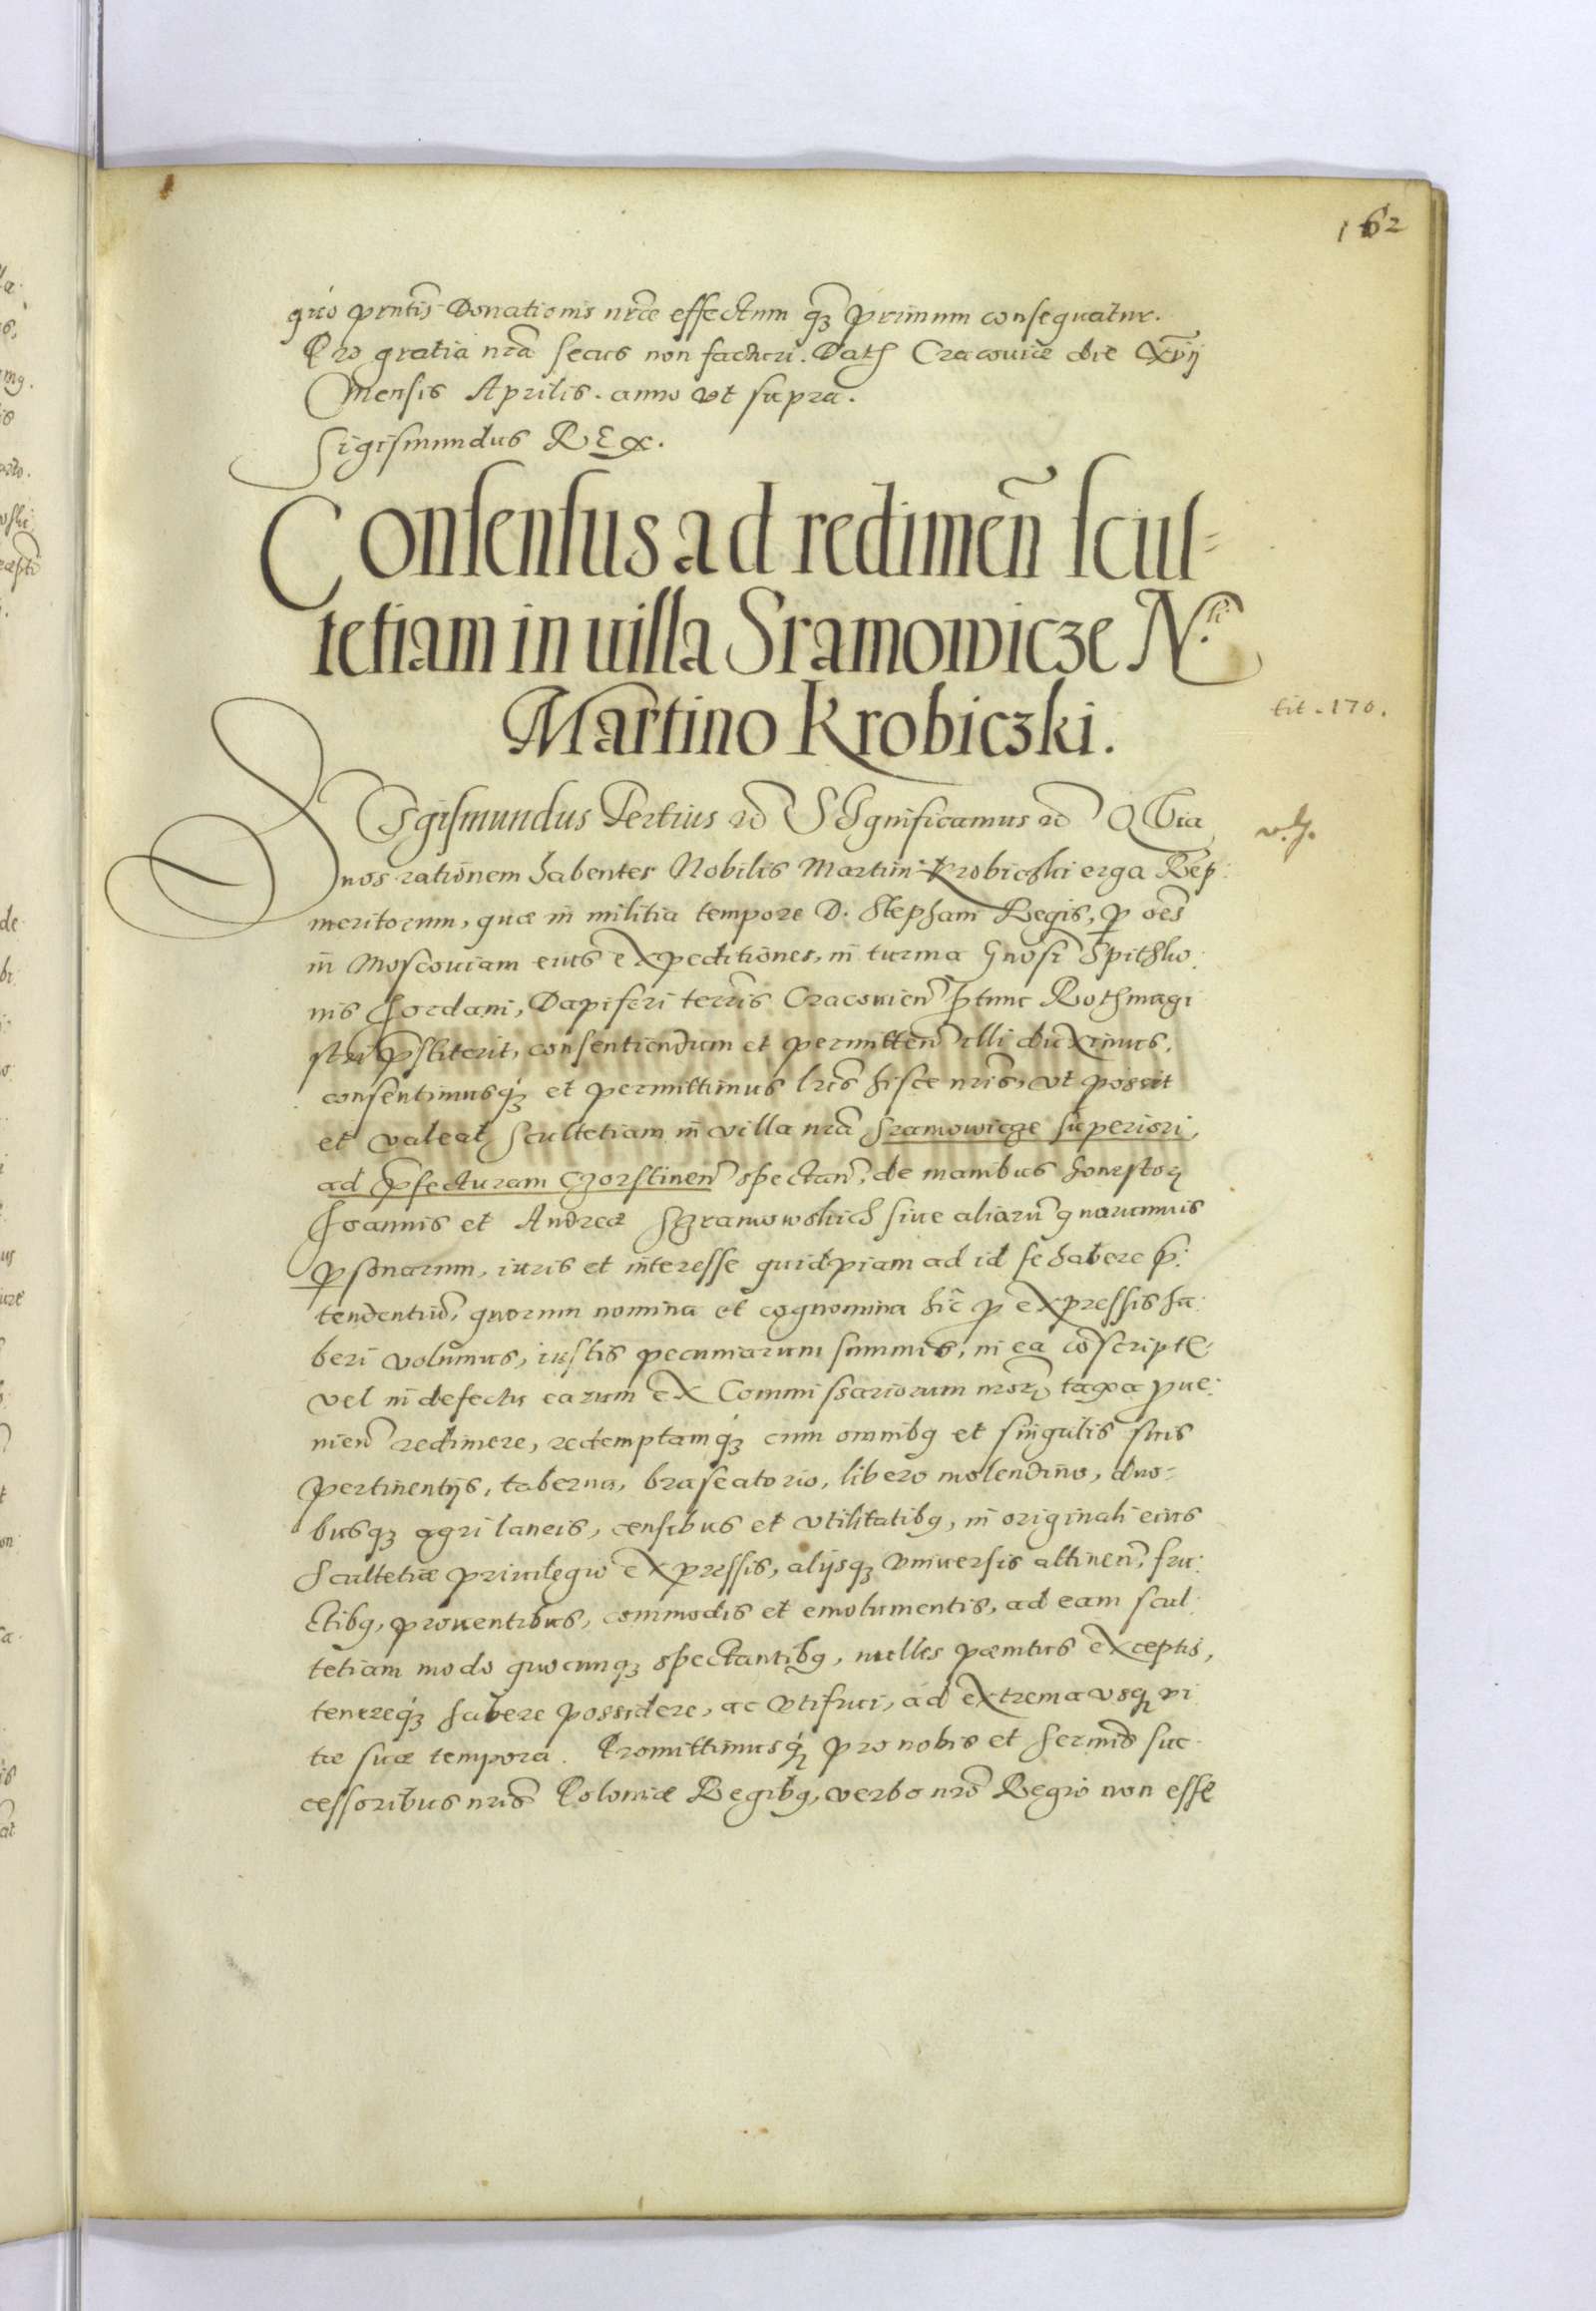 162
quo prntis Donationis nrae effectum qz primum consequatur.
Pro gratia nra secus non facturi. Dath Cracouiae die Xvij
Mensis Aprilis. anno vt supra.
Sigismundus REx.
Consensus ad redimen̄ scul=
tetiam in uilla Sramowicze N.li
Martino Krobiczki.
tit. 170.
SIgismundus Tertius Significamus QVia
nos rationem habentes Nobilis Martini Krobiczki erga Remp:
meritorum, quae in militia tempore D. Stephani Regis, p oēs
in Moscouiam eius expeditiones, in turma Gnosi Spithko:
nis Jordani, Dapiferi terrīs Cracouien̄ ptunc Rothmagi
stri pstiterit, consentiendum et permitten̄ illi duximus,
consentimusqz et permittimus lrīs hisce nrīs, vt possit
et valeat, Scultetiam in villa nrā Sramowicze superiori,
ad pfecturam Czorstinen̄ spectan̄, de manibus honestorz
Joannis et Andreae Szramowskich siue aliarū quarumuis
psonarum, iuris et interesse quidpiam ad id se habere p:
tendentiū, quorum nomina et cognomina hic p expressis ha:
beri volumus, iustis pecuniarum summis, in ea cōscriptis
vel in defectu earum ex Commissariorum nrorz taxa pue:
nien̄ redimere, redemptamqz cum omnibq et singulis suis
pertinentijs, taberna, braseatorio, libero molendino, duo=
busqz agri laneis, censibus et vtilitatibq, in originali eius
Scultetiae priuilegio expressis, alijsqz vniuersis attinen̄, fru:
ctibq, prouentibus, commodis et emolumentis, ad eam scul:
tetiam modo quocunqz spectantibq, nulles paenitus exceptis,
tenereqz habere possidere, ac vtifrui, ad extrema vsqz vi
tae suae tempora. Promittimusqz pro nobis et Sermīs suc:
cessoribus nrīs Poloniae Regibq, verbo nrō Regio non esse